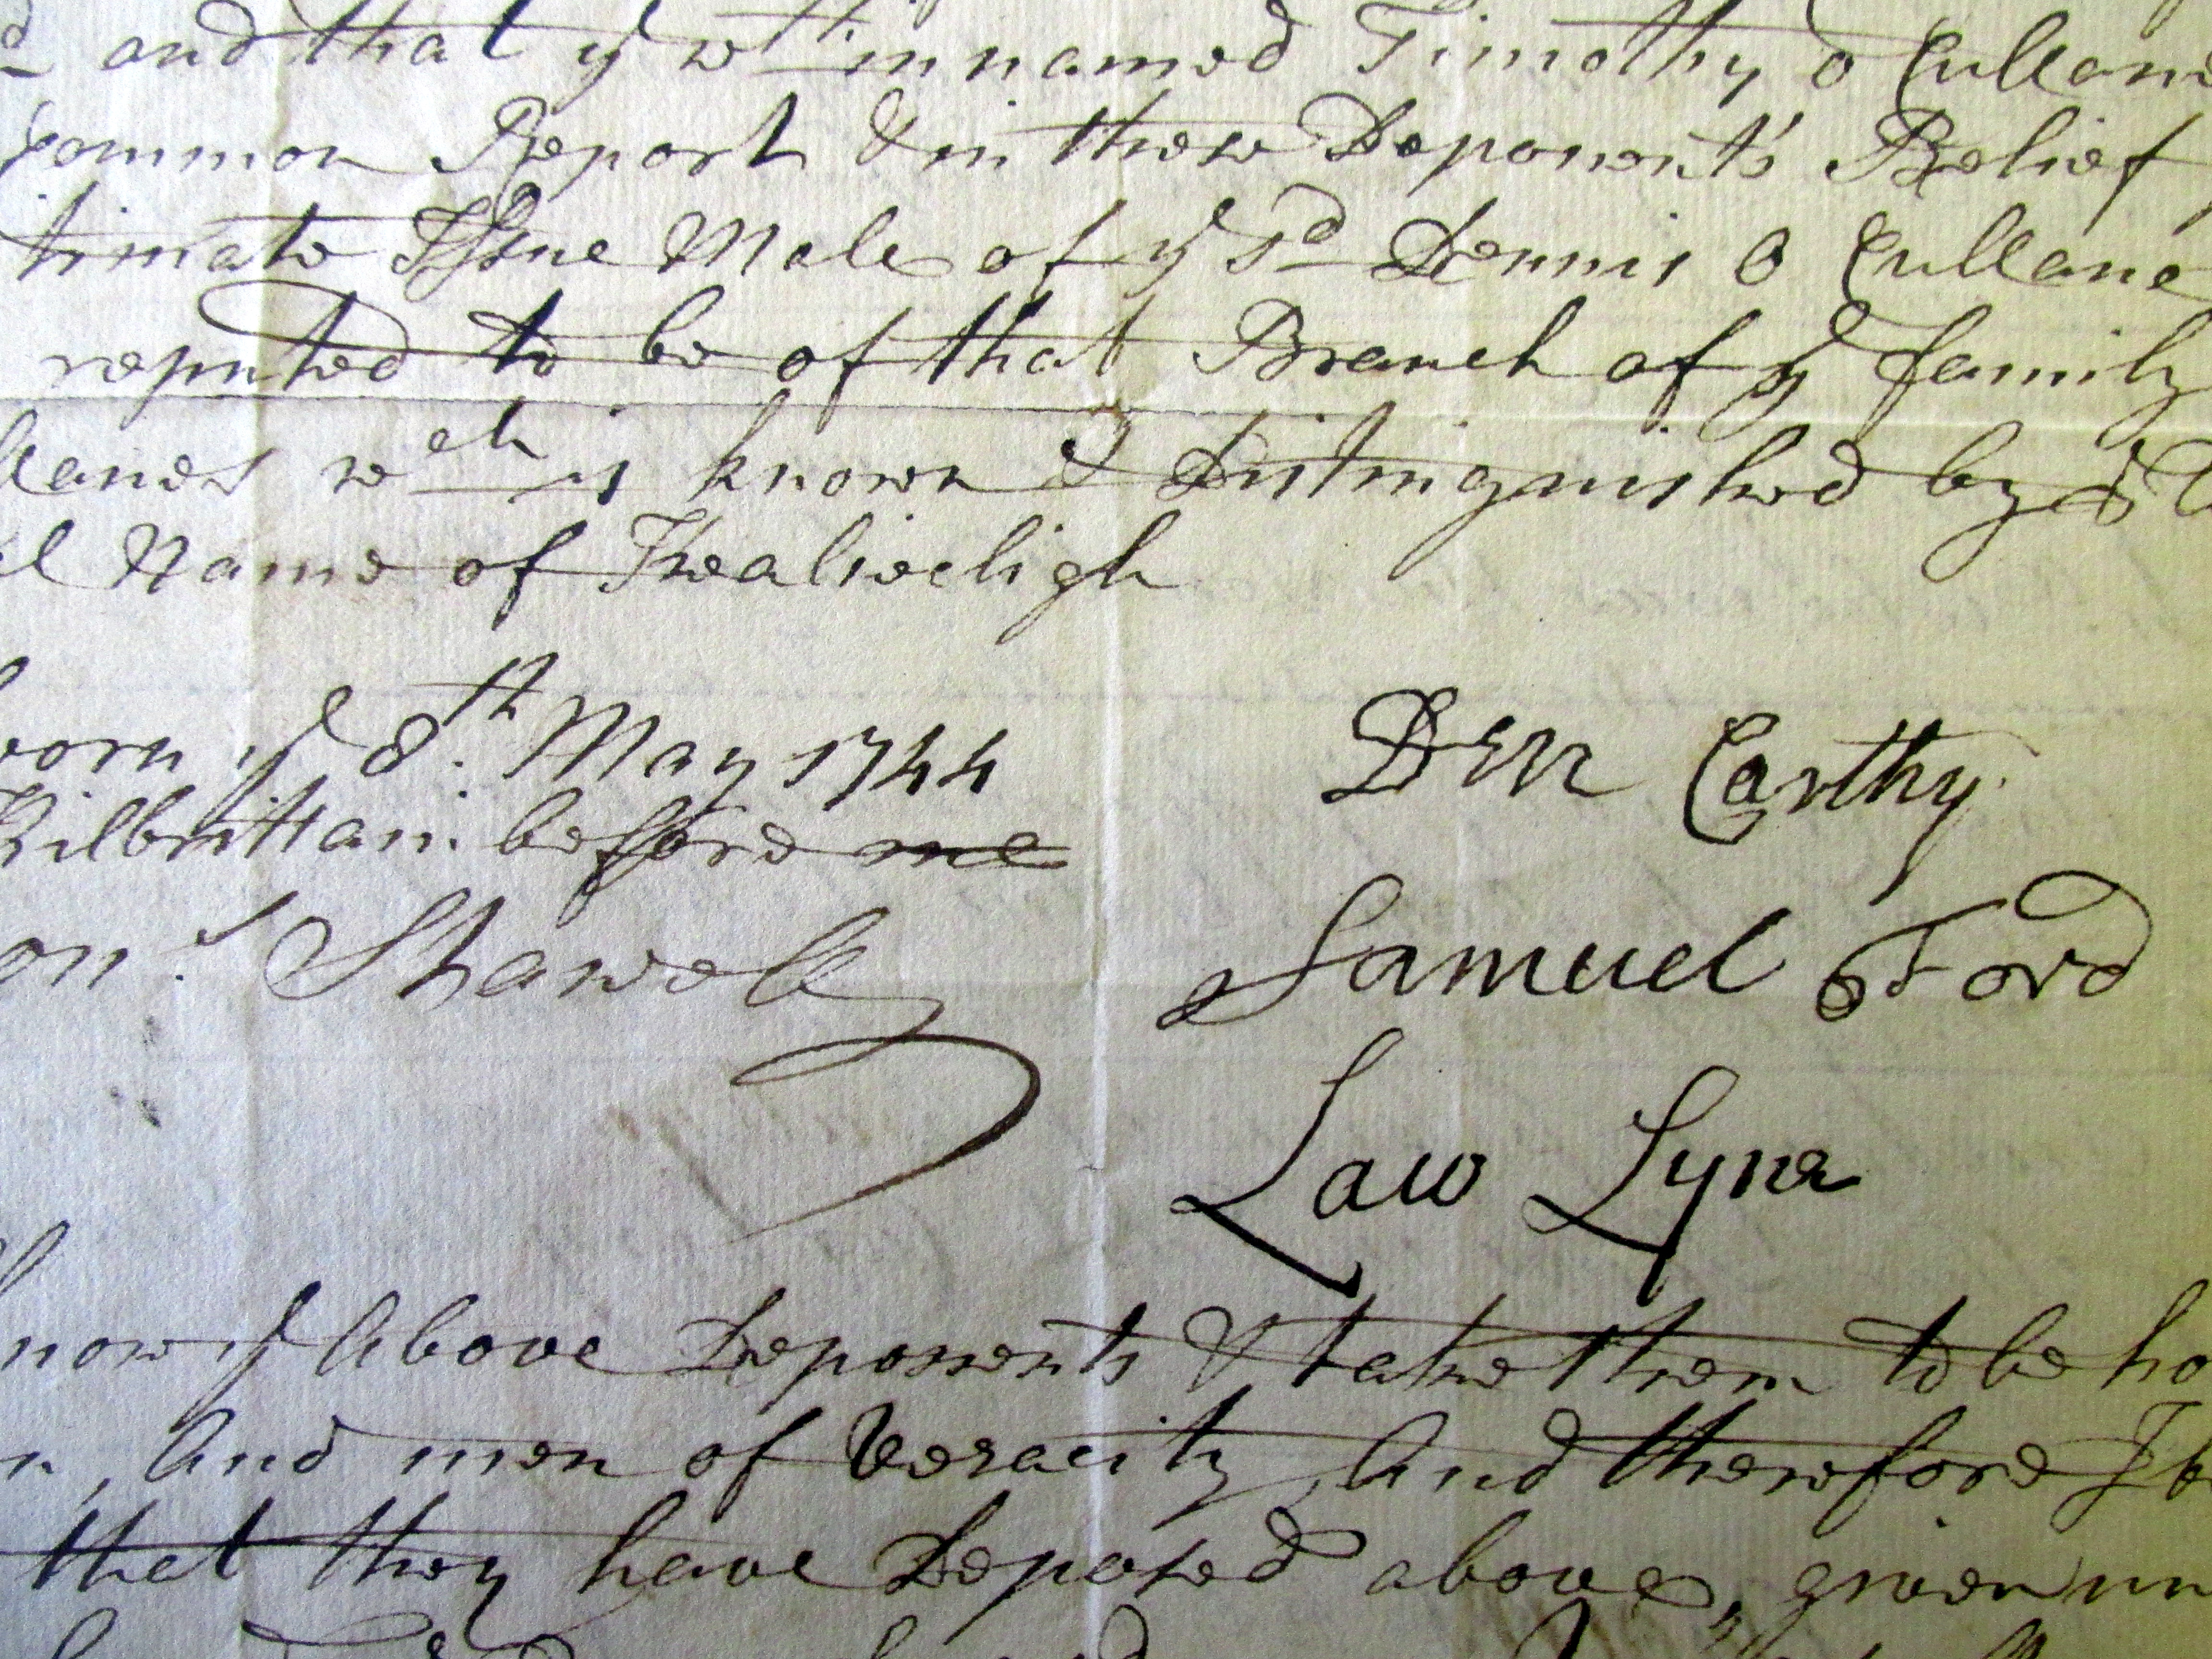 d and that ye wthin named Timothy o Cullane
common Report & in these Deponents Belief
timate Issue Male of ye sd Dennis O Cullane
reputed to be of that Branch of ye family
llanes wch is known & Distinguished by ye
l Name of
worn ye 8th May 1744
Kilbrittain before me
Den Carthy
onr Shawell
Samuel Ford
Law Lyne
know ye Above Deponents & take them to be ho
n, And men of Veracity, And therefore I
that they have Deposed above, given un